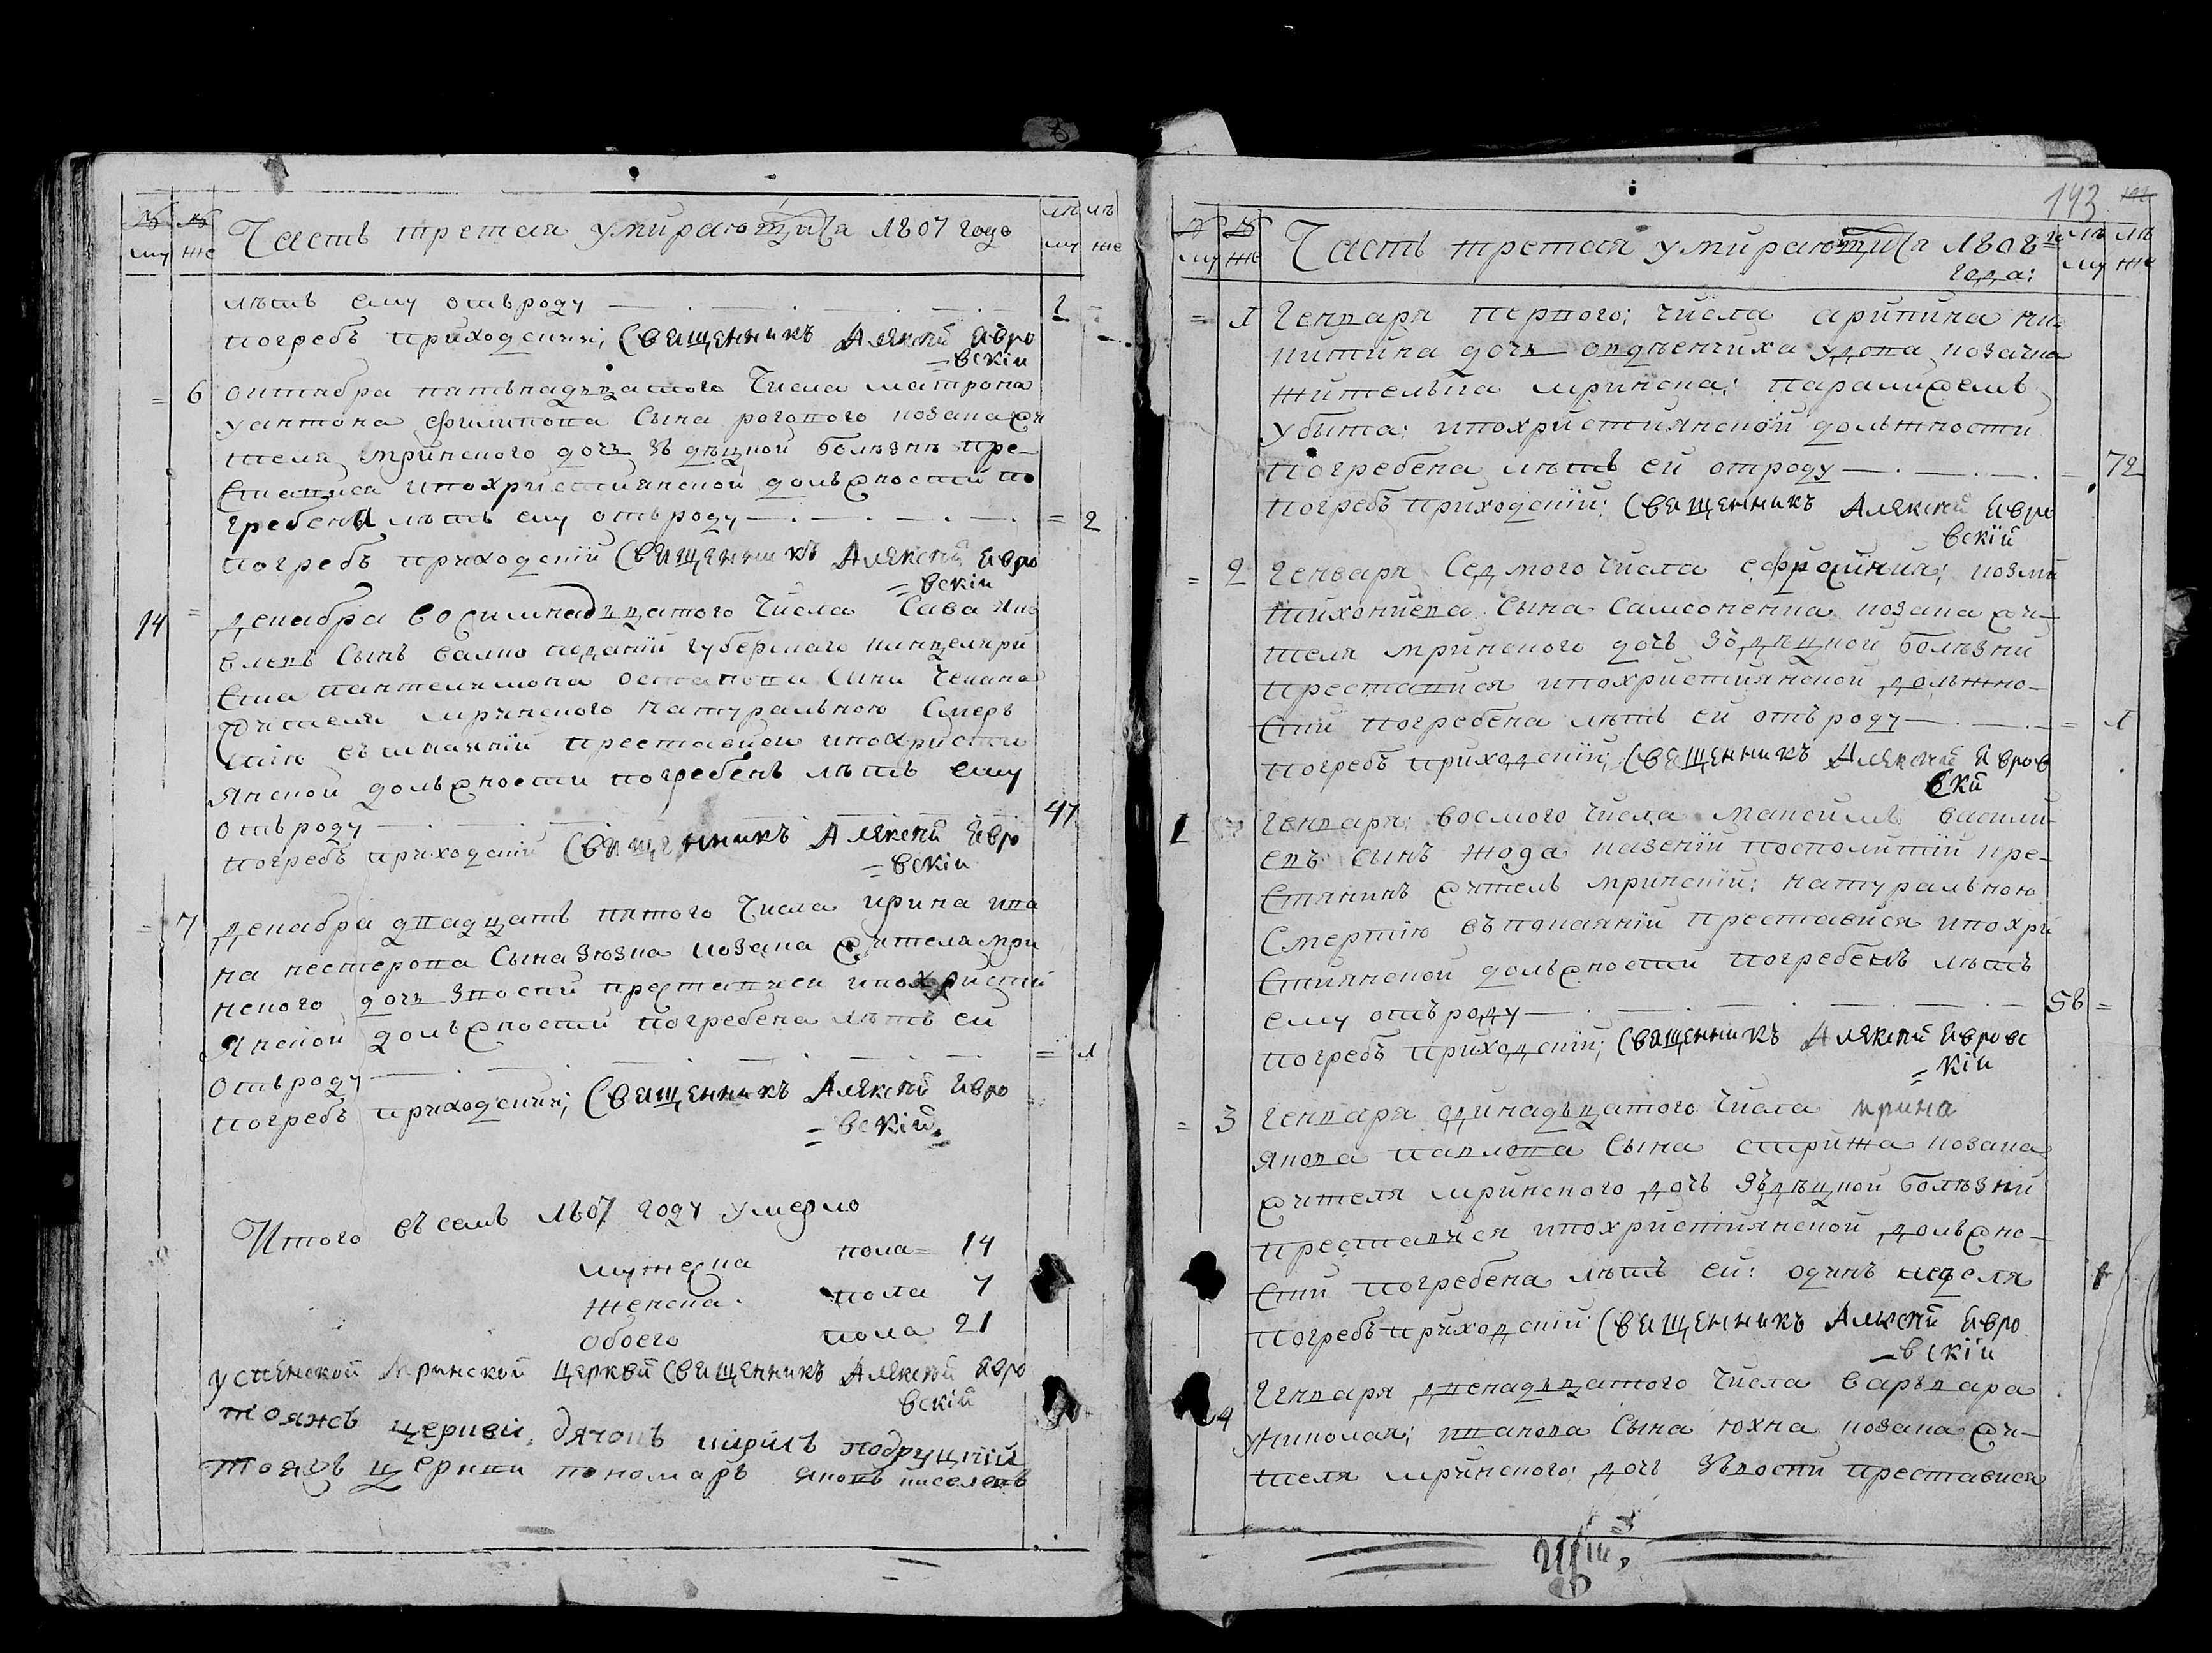 № му
№ же
Часть третая умирающихся 1807 года
лѣ му
лѣ же
лѣтъ ему отъ роду 2 =
погребъ приходскии; Священникъ Алексѣй Явро
=вскіи
= 6 октября пятънадцатого числа матрона
у антона филипова сына рогового козака жи
теля мринского дочь зъ дѣцкой болѣзнѣ пре-
ставися и по християнской должности по
гребена лѣтъ ему отъ роду = 2
погребъ приходскій Священникъ Алексѣй Явро
=вскіи
14 = декабря восимнадцатого числа Сава
сынъ губернаго канцеляри
ста пантелимона остапова сына
жителя мринского натуральною смер
тію въ покаянїи преставися и по христи
янской должности погребенъ лѣтъ ему
отъ роду 47
погребъ приходскій Священникъ Алексѣй Явро
=вскіи
= 7 декабря двадцать пятого числа ирина ива
на нестерова сына зюзка козака жителя мри
нского дочь зъ воспи преставися и по християн
янской должности погребена лѣтъ ей
отъ роду = 1
погребъ приходскии; Священникъ Алексѣй Явро
=вский
Итого въ семъ 1807 году умерло
мужеска пола = 14
женска пола 7
обоего пола 21
успѣнской Мринской церкви Священникъ Алексѣй Явро
вский
тояжъ церкви дячокъ кирилъ подруцкій
тояжъ церкви пономаръ яковъ киселевъ
143
№ му
№ же
Часть третая умирающихся 1808го
года:
лѣ му
лѣ же
= 1 Генваря первого; числа арипина ни
китина дочь авдѣенчиха удова козачка
жителька мринска; паралижемъ
убита; и по християнской должности
погребена лѣтъ ей отроду = 72
погребъ приходскїй; Священникъ Алексѣй Явро
вскїй
= 2 Генваря седмого числа ефросиния; козми
тихониева сына самсоненка козака жи-
теля мринского дочь зъ дѣцкой болѣзни
преставися и по християнской должно-
сти погребена лѣтъ ей отъ роду = 1
погребъ приходскїй; Священникъ Алексѣй Явров
ский
1 = Генваря; восмого числа максимъ васили
евъ сынъ жода казенїй посполитїй кре-
стянинъ житель мринскїй; натуральною
смертию въ покаянїй преставися и по хри
стиянской должности погребенъ лѣтъ
ему отъ роду 58 =
погребъ приходскїй; Священникъ Алексѣй Явровс
=кіи
= 3 Генваря единадцатого числа ирина
якова павлова сына стрижа козака
жителя мринского дочь зъ дѣцкой болѣзнїй
преставися и по християнской должно-
сти погребена лѣтъ ей: одинъ неделя 1
погребъ приходскїй Священникъ Алексѣй Явро
-вскїи
4 Генваря двенадцатого числа варвара
у николая; иванова сына юхна козака жи-
теля мринского; дочь зъ воспи преставися